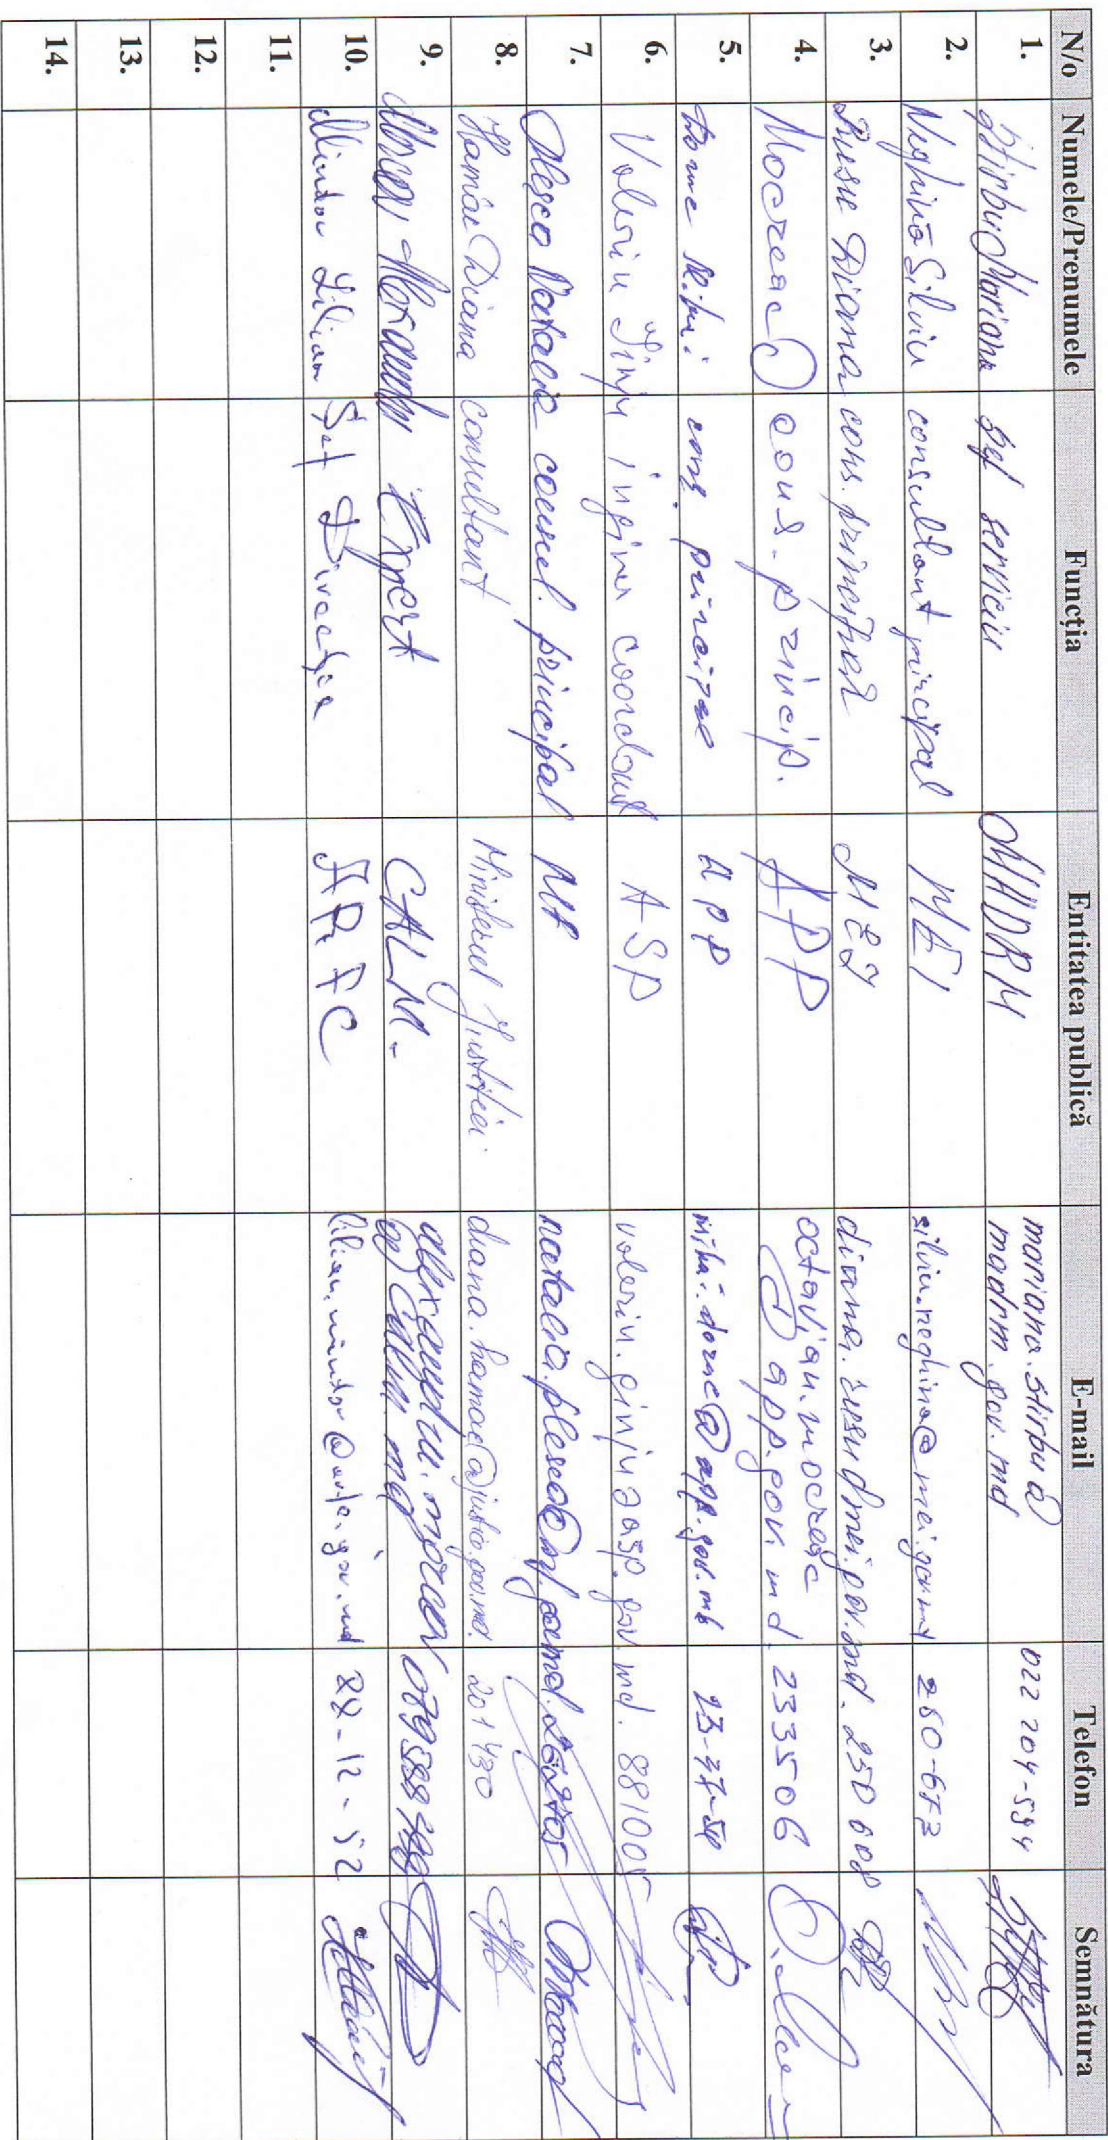 N/o Numele/Prenumele Funcția Entitatea publică E-mail Telefon Semnătura
1. Știrbu Mariana șef serviciu MADRM mariana.stirbu@ madrm.gov.md 022 204-594
2. Neghina Silviu consultant principal MEI silviu.neghina@mei.gov.md 250-673
3. Rusu Diana cons. principal MEI diana.rusu@mei.gov.md. 250 608
4. Mocreac O cons. princip. APP octavian.mocreac @app.gov.md. 233506
5. cons. principal APP mihai.dornc@app.gov.md 23-37-50
6. Valeriu Ginju inginer coordonat ASP valeriu.ginju@asp.gov.md. 88100
7. Plesca Natalia consul. principal natalia.plesca@
8. Hamac Diana consultant Ministerul Justiției. diana.hamac@justice.gov.md. 201430
9. Expert CALM. @calm.md
10. Mindov Lilian Șef Direcție ARFC lilian.mindov@arfc.gov.md 28-12-52
11.
12.
13.
14.